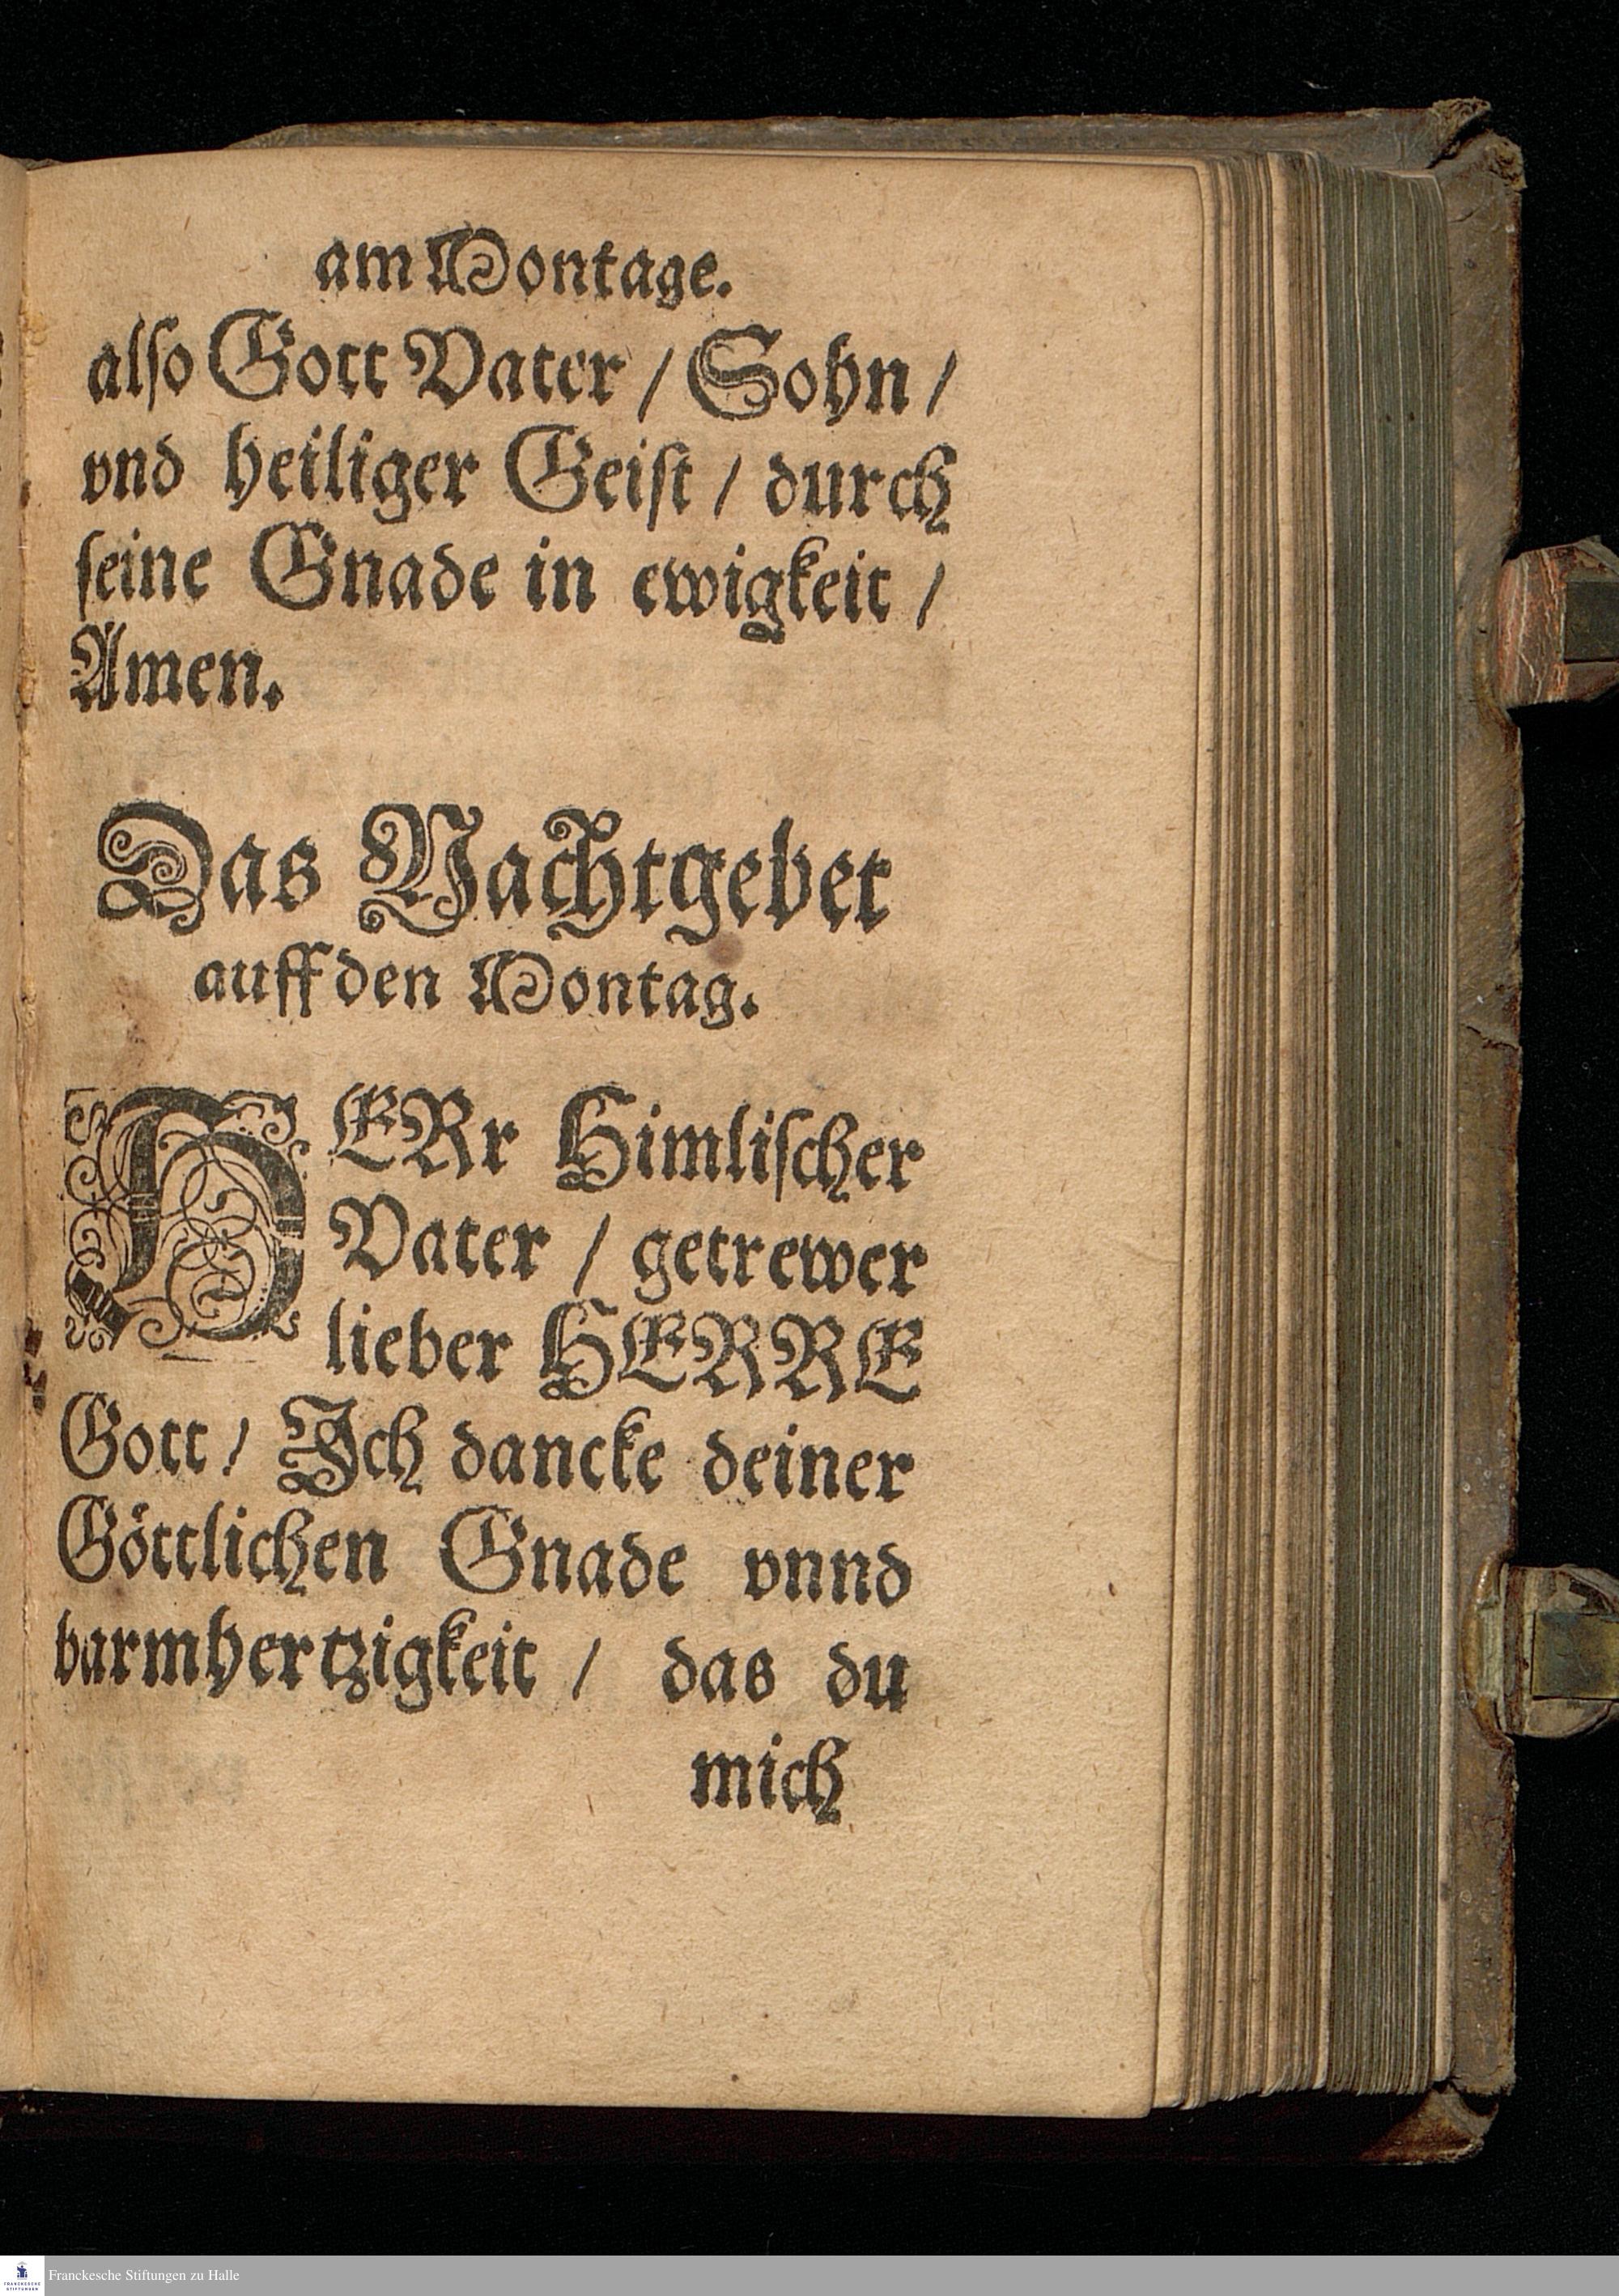 am Montage.
also Gott Vater / Sohn /
vnd heiliger Geist / durch
seine Gnade in ewigkeit /
Amen.
Das Nachtgebet
auff den Montag.
HERr Himlischer
Vater / getrewer
lieber HERRE
Gott / Ich dancke deiner
Göttlichen Gnade vnnd
barmhertzigkeit / das du
mich
FRANCKESCHE
STIFTUNGEN
Franckesche Stiftungen zu Halle